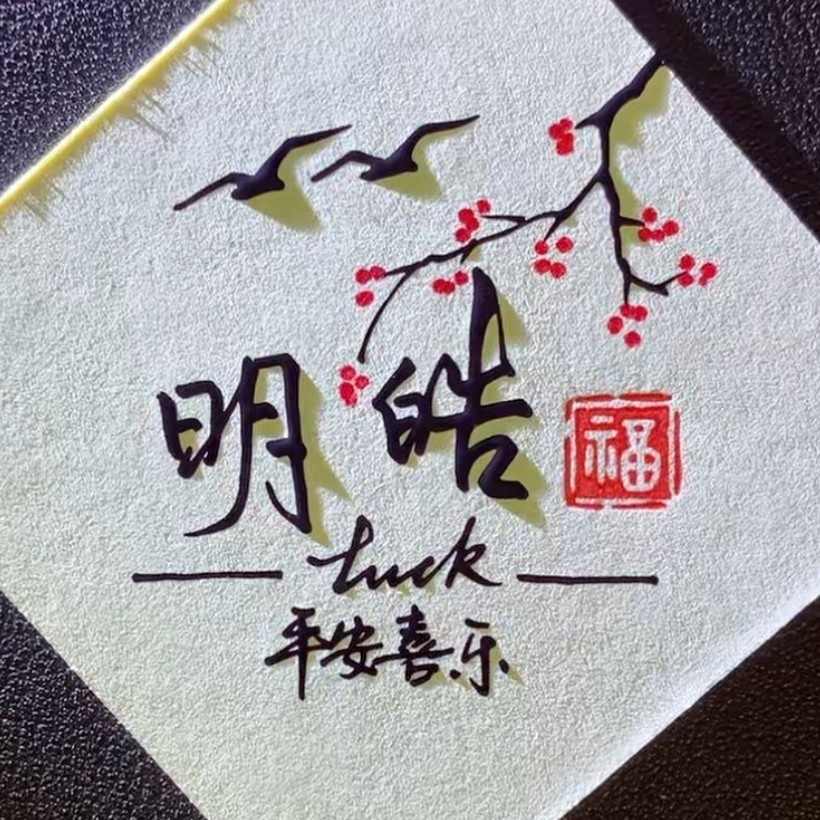 明皓
福
luck
平安喜乐